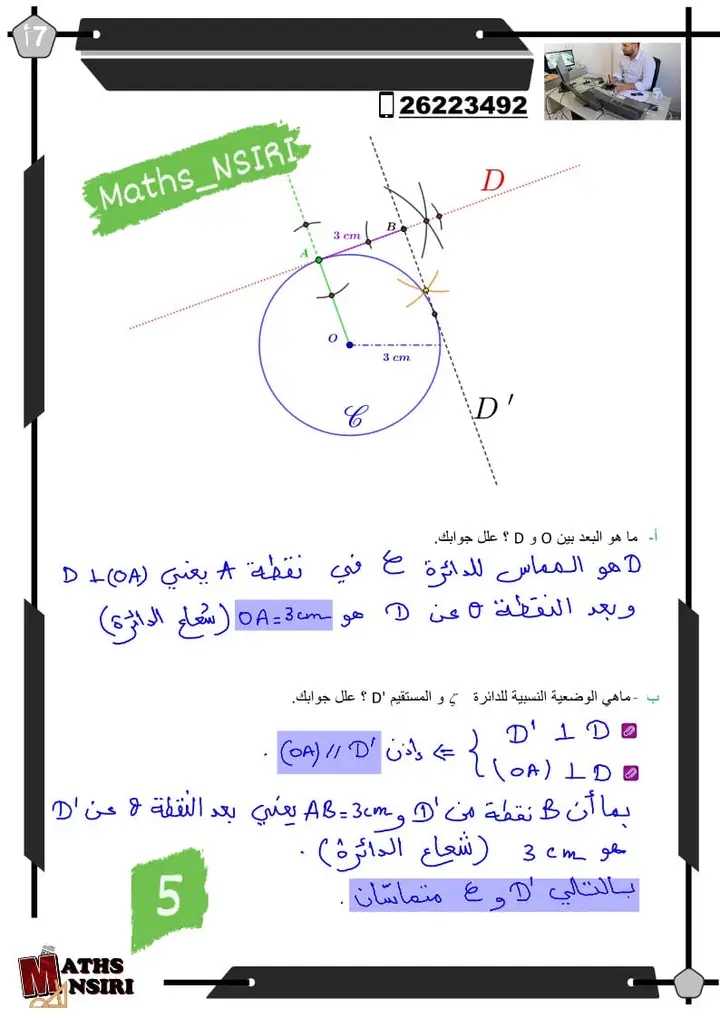 أ7
26223492
Maths_NSIRI
D
3 cm
B
A
O
3 cm
𝒞
D'
أ- ما هو البعد بين O و D ؟ علل جوابك.
D هو المماس للدائرة 𝒞 في نقطة A يعني D ⊥ (OA)
وبعد النقطة O عن D هو OA = 3cm (شعاع الدائرة)
ب - ماهي الوضعية النسبية للدائرة ζ و المستقيم D' ؟ علل جوابك.
D' ⊥ D
(OA) ⊥ D
} ⇒ إذن (OA) // D' .
بما أن B نقطة من D' و AB = 3cm يعني بعد النقطة O عن D'
هو 3 cm (شعاع الدائرة) .
بالتالي D' و 𝒞 متماسّان .
5
MATHS
NSIRI